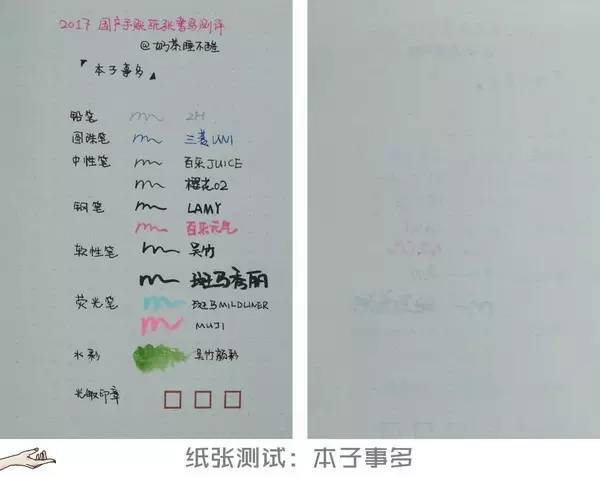 2017 国产手账纸张书写测评
@奶茶睡不醒
「本子事多」
铅笔 2H
圆珠笔 三菱UNI
中性笔 百乐JUICE
樱花02
钢笔 LAMY
百乐元气
软性笔 吴竹
斑马秀丽
荧光笔 斑马MILDLINER
MUJI
水彩 吴竹颜彩
光敏印章
纸张测试：本子事多